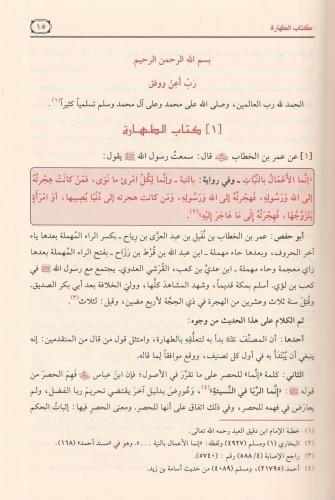 كتاب الطهارة
١٥
بسم الله الرحمن الرحيم
ربّ أعِنْ ووفق
الحمد لله رب العالمين، وصلى الله على محمد وعلى آل محمد وسلم تسليماً كثيراً(١).
[١] كتاب الطهارة
[١] عن عمر بن الخطاب ﷺ قال: سمعتُ رسول الله ﷺ يقول:
«إنَّما الأعْمَالُ بالنيَّات ـ وفي رواية: بالنية ـ وإنَّما لِكلِّ امرئ ما نَوَى، فَمَنْ كانَتْ هِجرَتُهُ
إلى اللهِ وَرَسُولِهِ، فَهِجْرَتُهُ إلى اللهِ وَرَسُولِهِ، وَمَن كانَت هجرته إلى دُنْيَا يُصِيبها، أوْ امْرَأةٍ
يَتَزَوَّجُها، فَهِجْرَتُهُ إلى مَا هَاجَرَ إلَيْهِ»(٢).
أبو حفص: عمر بن الخطاب بن نُفَيل بن عبد العزّى بن رياح ـ بكسر الراء المهملة بعدها ياء
آخر الحروف، وبعدها حاء مهملة ـ ابن عبد الله بن قُرْط بن رَزَاح ـ بفتح الراء المهملة بعدها
زاي معجمة وحاء مهملة ـ ابن عديّ بن كعب، القُرَشي العدوي. يجتمع مع رسول الله ﷺ في
كعب بن لؤي. أسلم بمكة قديماً، وشهد المشاهدَ كلَّها، وولي الخلافة بعد أبي بكر الصديق.
وقُتل سنة ثلاث وعشرين من الهجرة في ذي الحِجَّة لأربع مضين، وقيل: لثلاث(٣).
ثم الكلام على هذا الحديث من وجوه:
أحدها: أن المصنِّف بدأ به لتعلُّقِه بالطهارة، وامتثل قول من قال من المتقدمين: إنه
ينبغي أن يُبْتَدَأ به في أول كل تصنيف، ووقع موافقاً لِما قاله.
الثاني: كلمة «إنَّما» للحصر على ما تقرَّرَ في الأصول؛ فإن ابنَ عباس فَهِمَ الحصرَ من
قوله ﷺ: «إنما الرِّبا في النَّسيئةِ»(٤)، وعُورِضَ بدليل آخر يقتضي تحريمَ رِبا الفضل، ولم
يعارَض في فهمه للحصر، وفي ذلك اتفاق على أنها للحصر. ومعنى الحصر فيها: إثباتُ الحكم
(١) خطبة الإمام ابن دقيق العيد رحمه الله تعالى.
(٢) البخاري (١) ومسلم (٤٩٢٧) ولفظه: «إنما الأعمال بالنية ...». وهو في «مسند أحمد» (١٦٨).
(٣) راجع الإصابة (٥٨٨/٤) رقم: (٥٧٤٠).
(٤) أحمد (٢١٧٩٥)، ومسلم (٤٠٨٩) من حديث أسامة بن زيد.